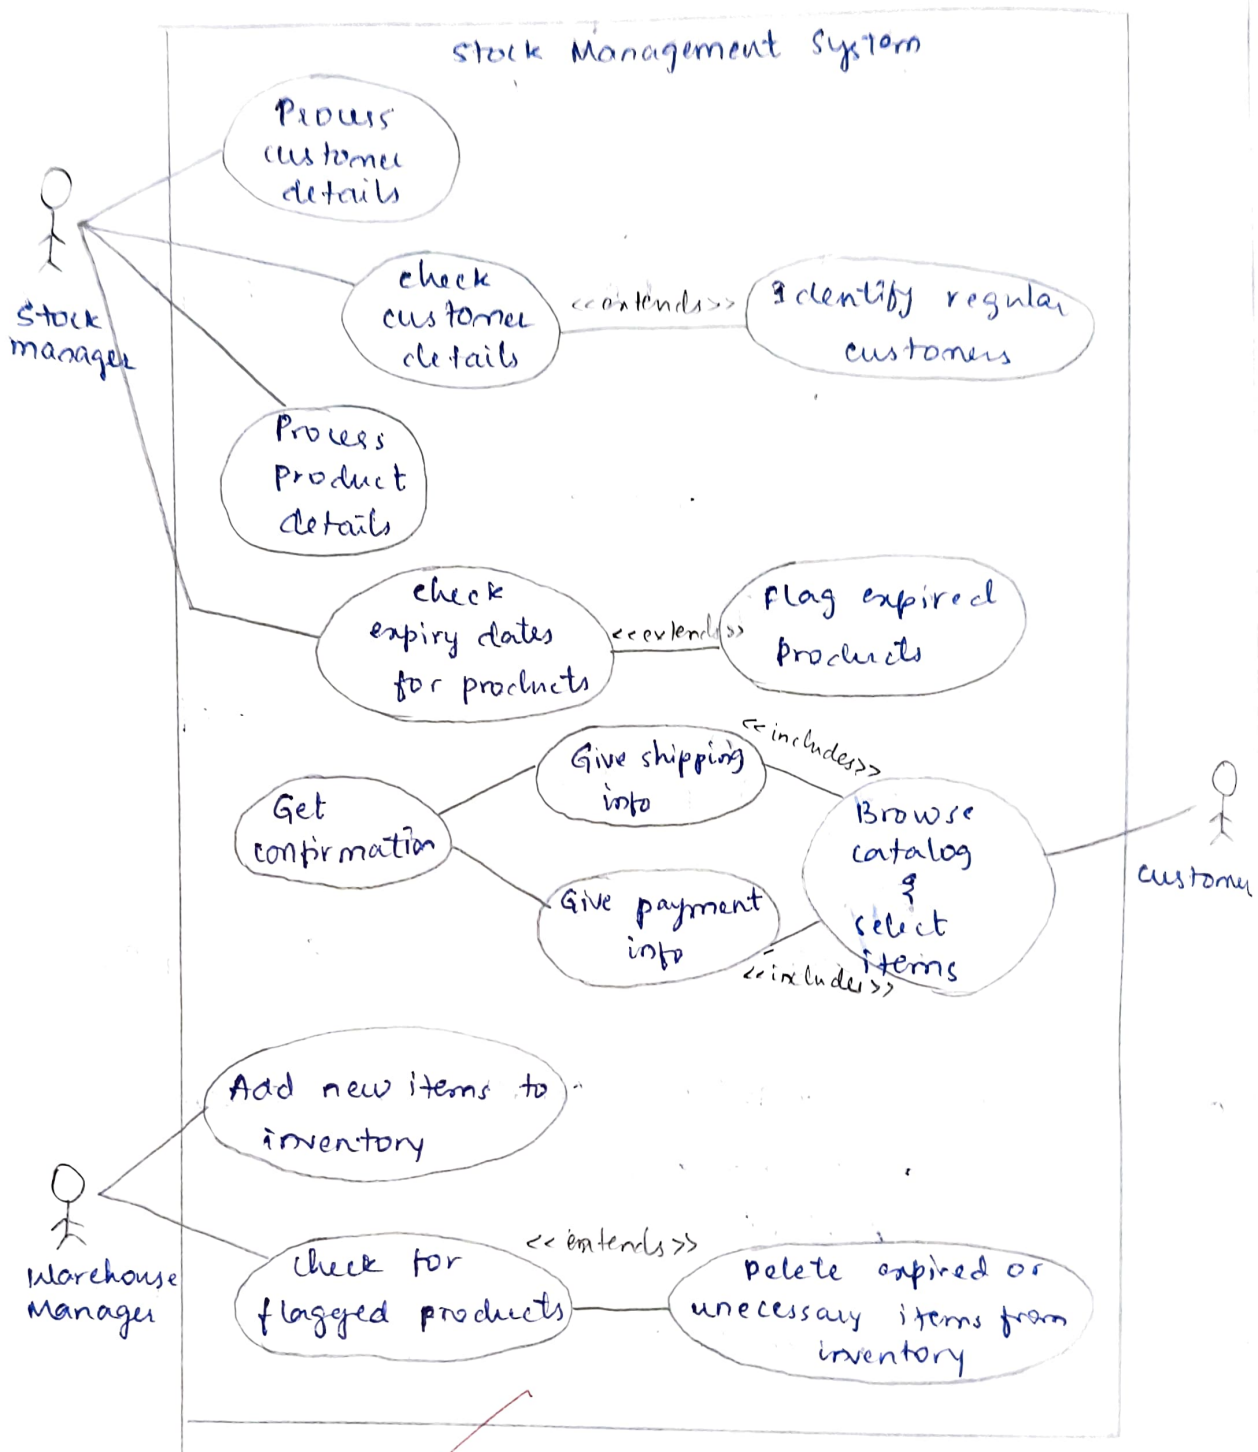 Stock Management System
Process
customer
details
Stock
manager
check
customer
details
<<extends>>
Identify regular
customers
Process
Product
details
check
expiry dates
for products
<<extends>>
Flag expired
Products
Give shipping
info
<<includes>>
Get
confirmation
Browse
catalog
&
select
items
customer
Give payment
info
<<includes>>
Add new items to
inventory
Warehouse
Manager
check for
flagged products
<<extends>>
Delete expired or
unecessary items from
inventory